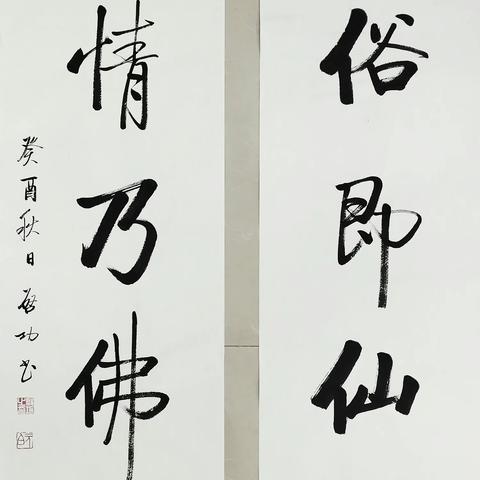 俗即仙
情乃佛
癸酉秋日 启功书